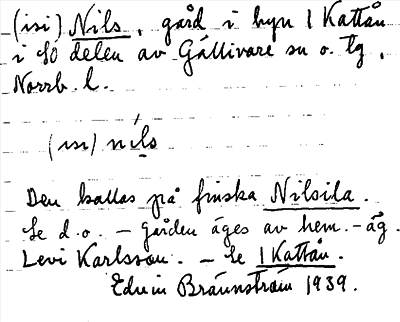 (isi) Nils, gård i byn 1 Kattån
i SO delen av Gällivare sn o. tg,
Norrb. l.
(isi) níls
Den kallas på finska Nilsila.
Se d. o. – gården äges av hem.-äg.
Levi Karlsson. – Se 1 Kattån.
Edvin Brännström 1939.